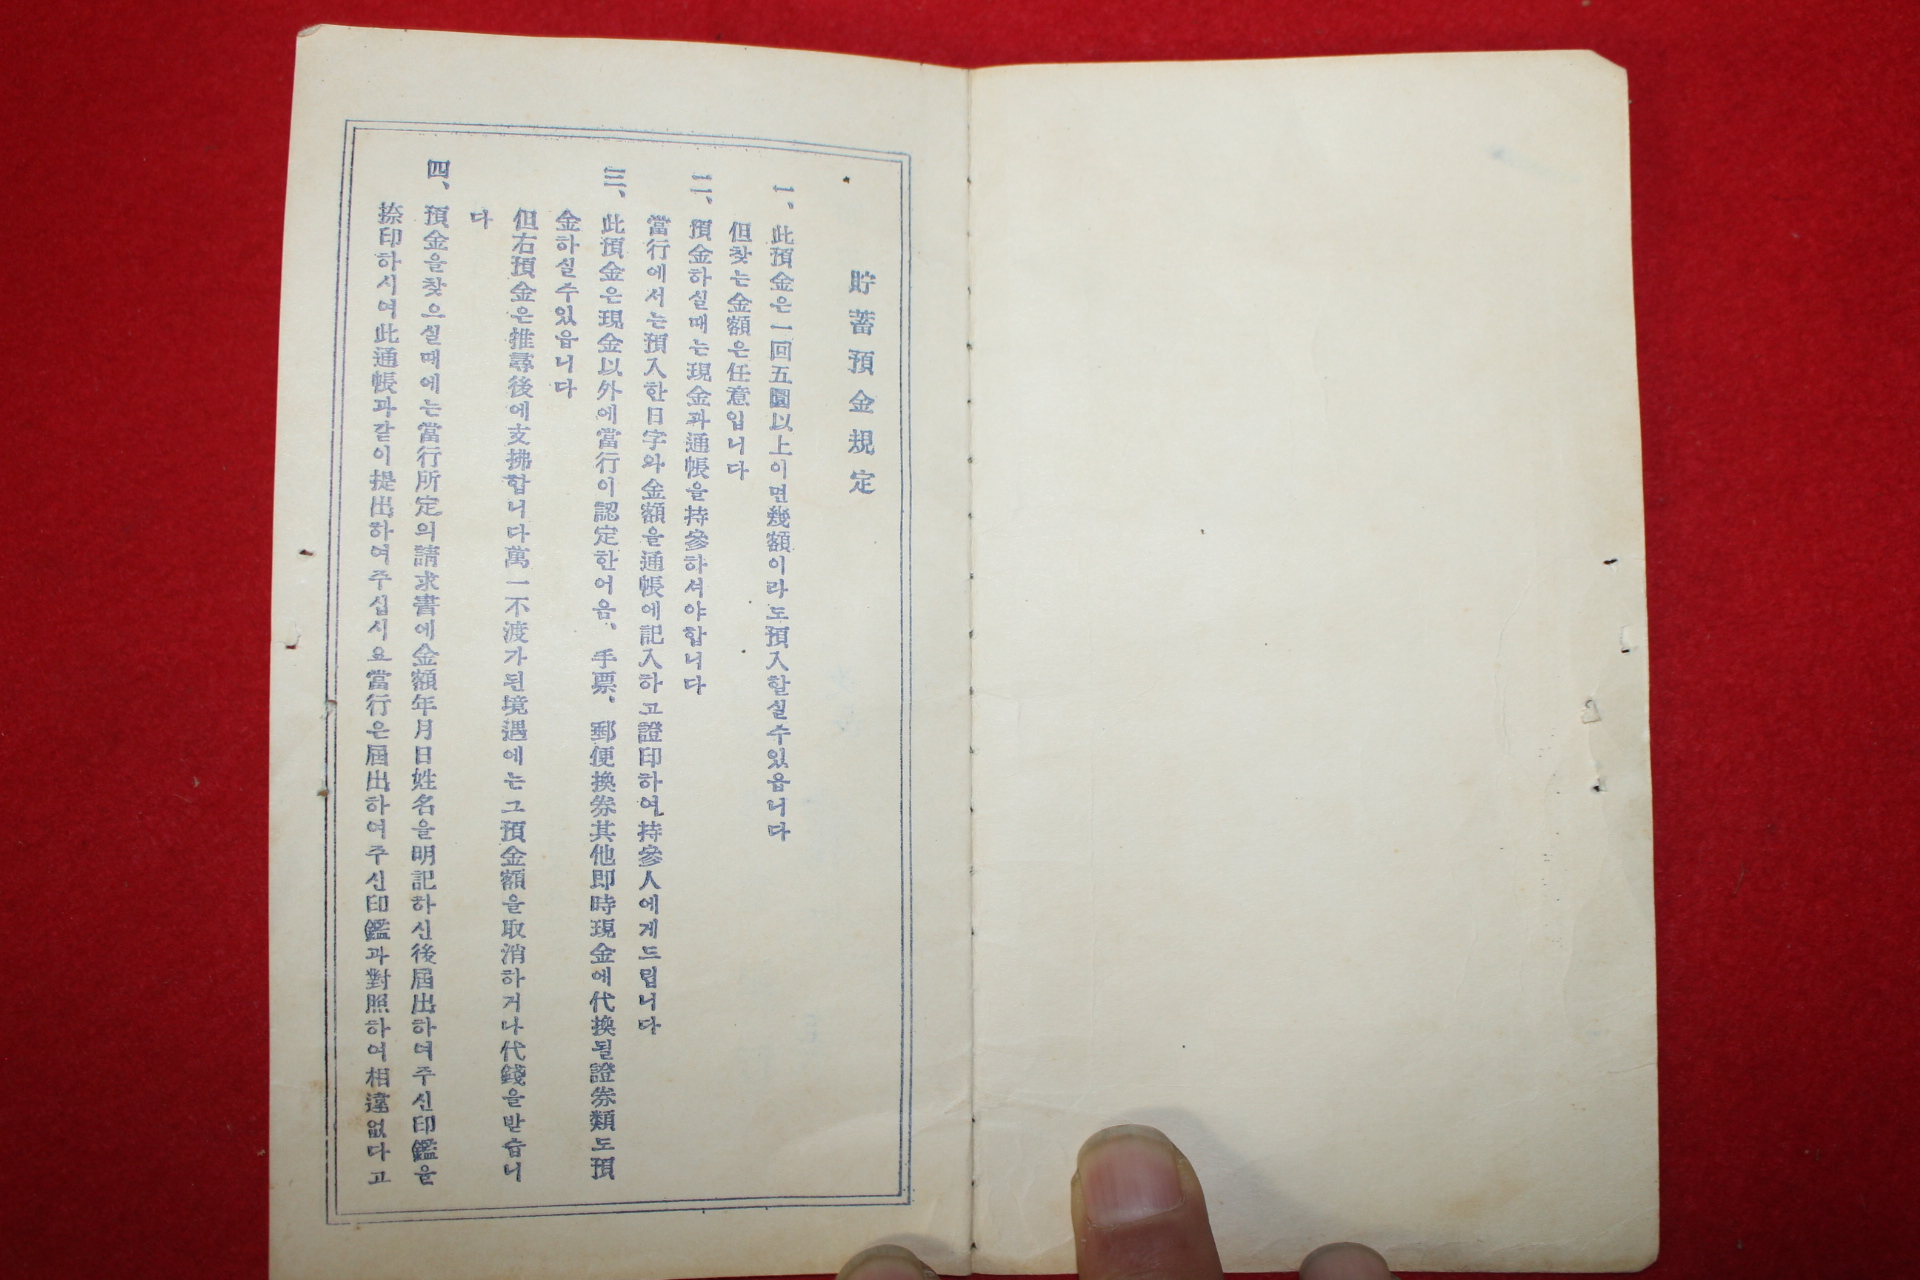 貯蓄預金規定
一、此預金은一回五圓以上이면幾額이라도預入할실수있읍니다
但찾는金額은任意입니다
二、預金하실때는現金과通帳을持參하셔야합니다
當行에서는預入한日字와金額을通帳에記入하고證印하여持參人에게드립니다
三、此預金은現金以外에當行이認定한어음、手票、郵便換券其他即時現金에代換될證券類도預
金하실수있읍니다
但右預金은推尋後에支拂합니다萬一不渡가된境遇에는그預金額을取消하거나代錢을받습니
다
四、預金을찾으실때에는當行所定의請求書에金額年月日姓名을明記하신後屆出하여주신印鑑을
捺印하시여此通帳과같이提出하여주십시요當行은屆出하여주신印鑑과對照하여相違없다고